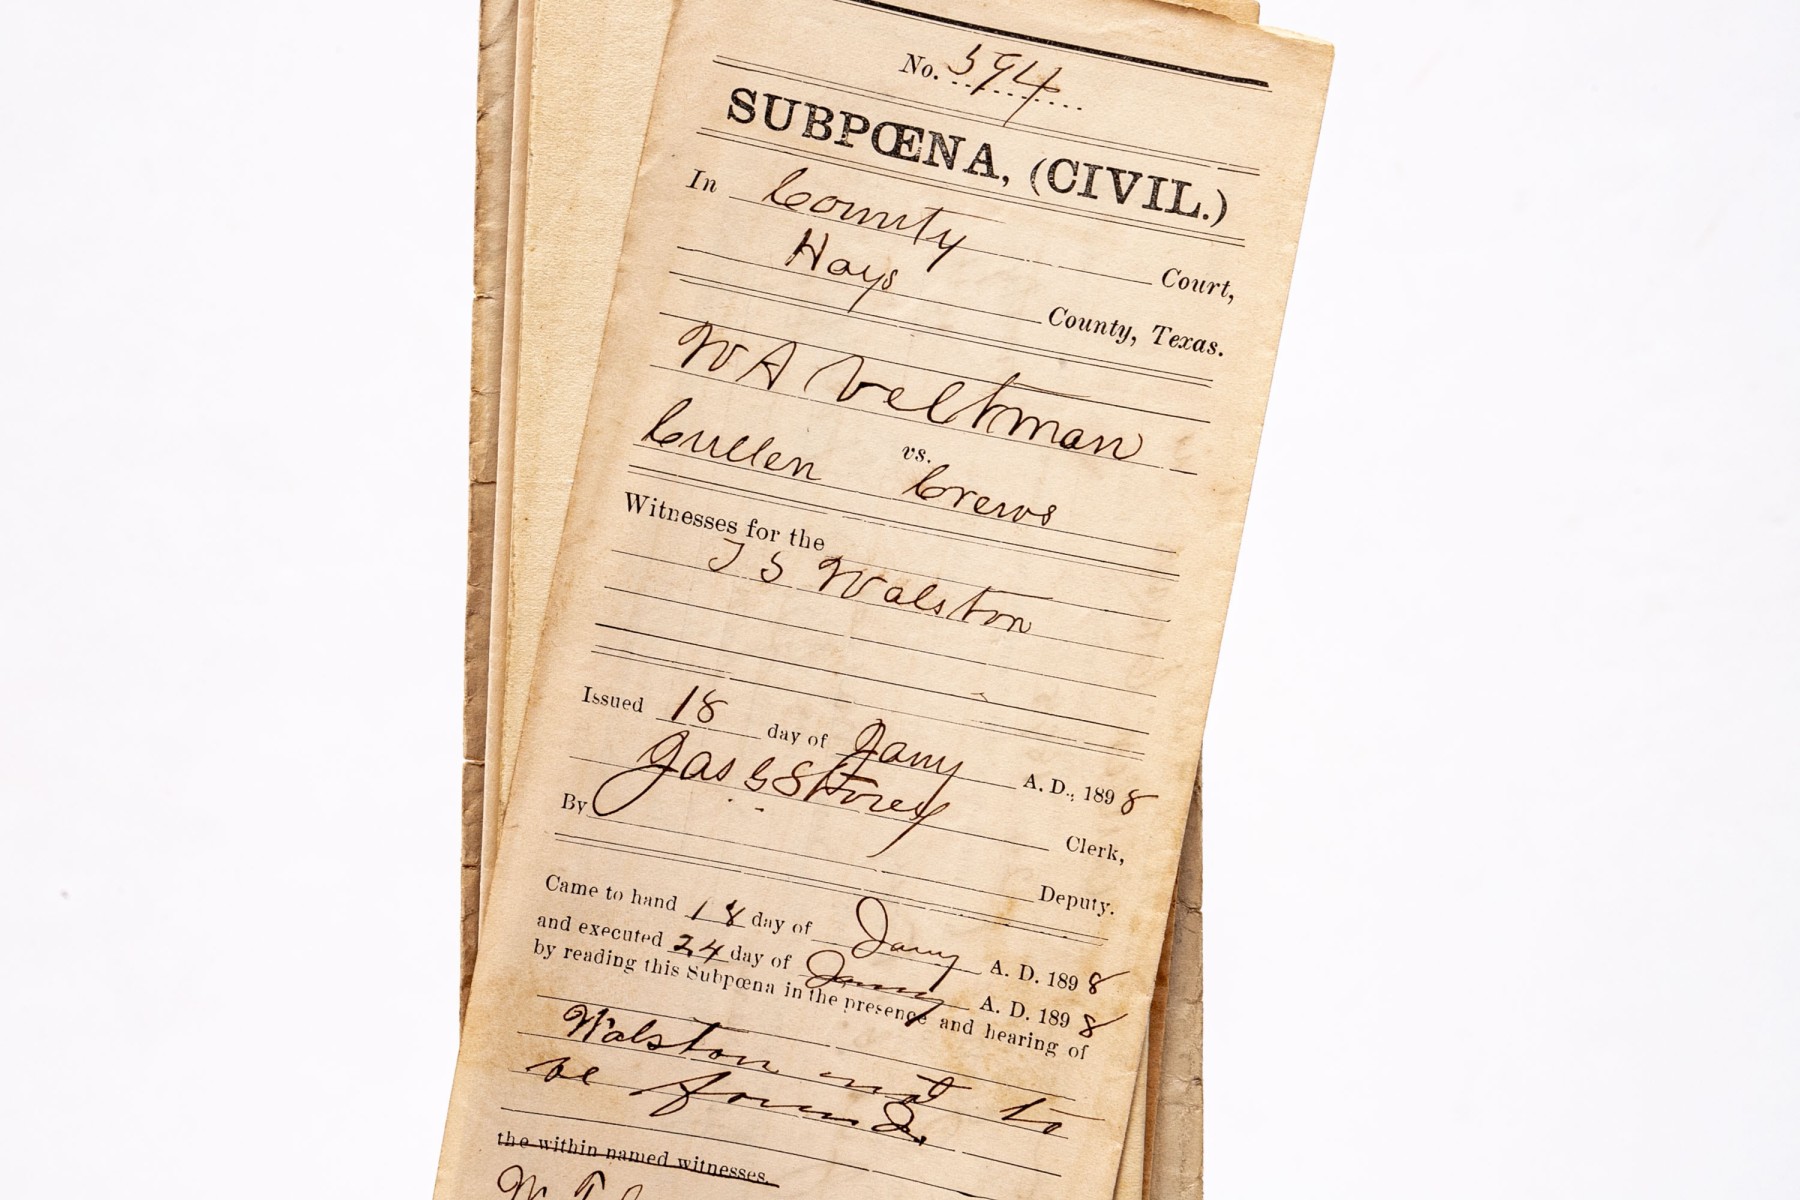 No. 594
SUBPŒNA, (CIVIL.)
In County Court,
Hays County, Texas.
W A Veltman
vs.
Cullen Crews
Witnesses for the
J S Walston
Issued 18 day of Jany A. D., 1898
Jas G Storey Clerk,
By Deputy.
Came to hand 18 day of Jany A. D. 1898
and executed 24 day of Jany A. D. 1898
by reading this Subpœna in the presence and hearing of
Walston not to
be found.
the within named witnesses.